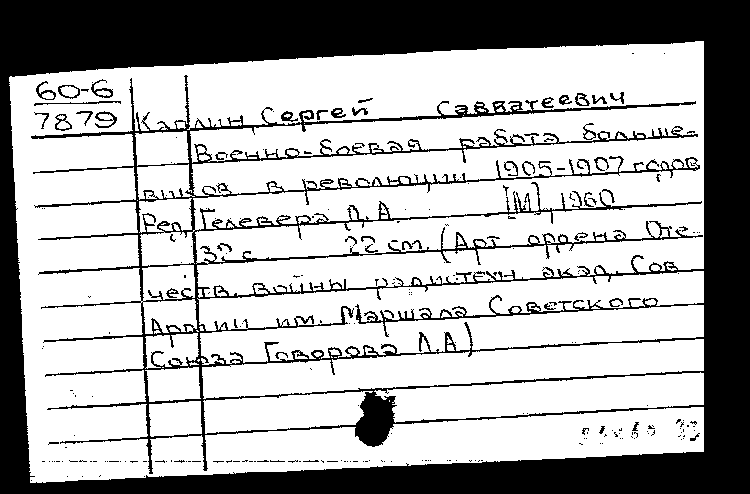 60-6
7879 Каплин, Сергей Савватеевич
Военно-боевая работа больше-
виков в революции 1905-1907 годов
Ред. Гелевера Д.А. [М], 1960
32 с. 22 см. (Арт. ордена Оте-
честв. войны радиотехн. акад. Сов.
Армии им. Маршала Советского
Союза Говорова Л.А)